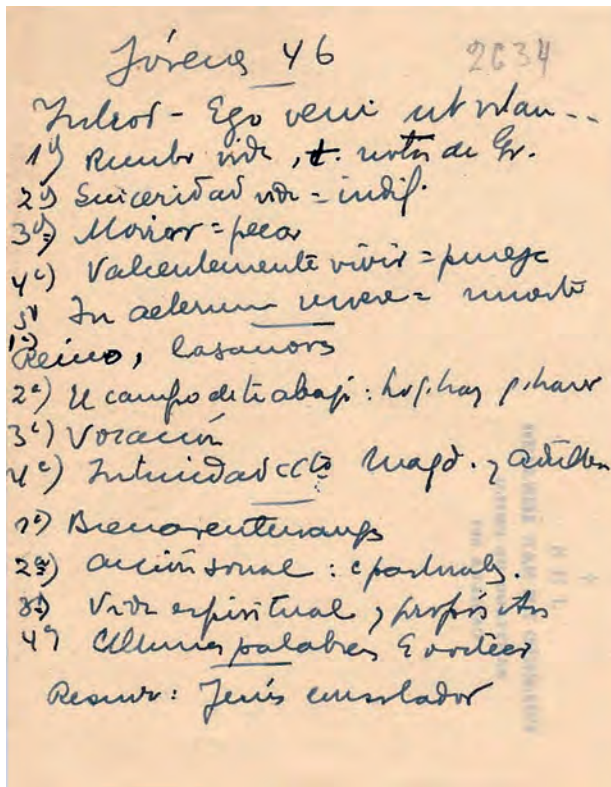 Jóvenes 46
2634
Introd - Ego veni ut vitam --
1º) Rumbo vida, t. notas de Gr.
2º) Sinceridad vida = indif.
3º) Morior = pecar
4º) Valientemente vivir = pureza
5º In aeternum vivere = muerte
1º) Reino, Casanova
2º) El campo de trabajo: hay p. hacer
3º) Vocación
4º) Intimidad c Cto Magd. y
1º) Bienaventuranzas
2º) acción social: c pastorales.
3º) Vida espiritual, propósitos
4º) Ultimas palabras
Resurr: Jesús consolador